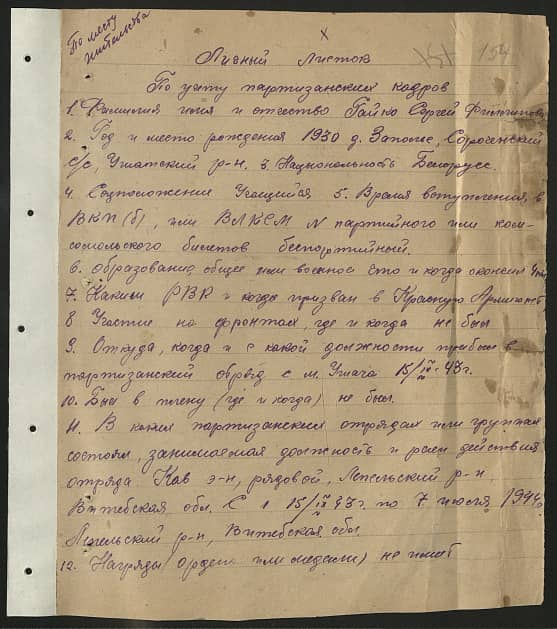 По месту
жительства
X
154
Личный Листок
По учету партизанских кадров
1. Фамилия имя и отчество Гайко Сергей Филиппов
2. Год и место рождения 1930 д. Заполье, Сорочинский
с/с, Ушатский р-н. 3. Национальность Белорусс.
4. Соцположение Учащийся 5. Время вступления в
ВКП(б), или ВЛКСМ N партийного или ком-
сомольского билетов беспартийный.
6. Образование общее или военное что и когда окончил 4
7. Каким РВК и когда призван в Красную Армию
8 Участие на фронтах, где и когда не был
9. Откуда, когда и с какой должности прибыл в
партизанский отряд с м. Ушача 15/IV-43г.
10. Был в плену (где и когда) не был.
11. В каких партизанских отрядах или группах
состоял, занимаемая должность и район действия
отряда. Кав э-н, рядовой, Лепельский р-н,
Витебская обл. С 15/IV 43г. по 7 июля 1944г.
Лепельский р-н, Витебская обл.
12. Награды (ордена или медали) не имеет